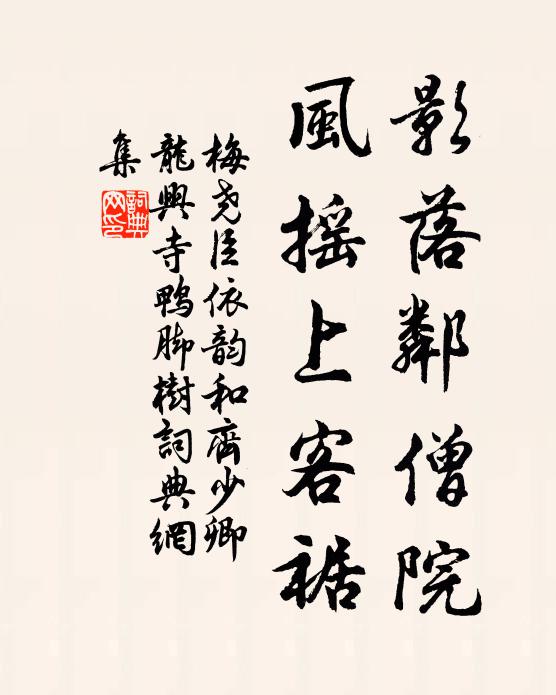 影落鄰僧院
風搖上客裾
梅堯臣依韵和齊少卿
龍興寺鴨脚樹詞典網
集
詞典網印